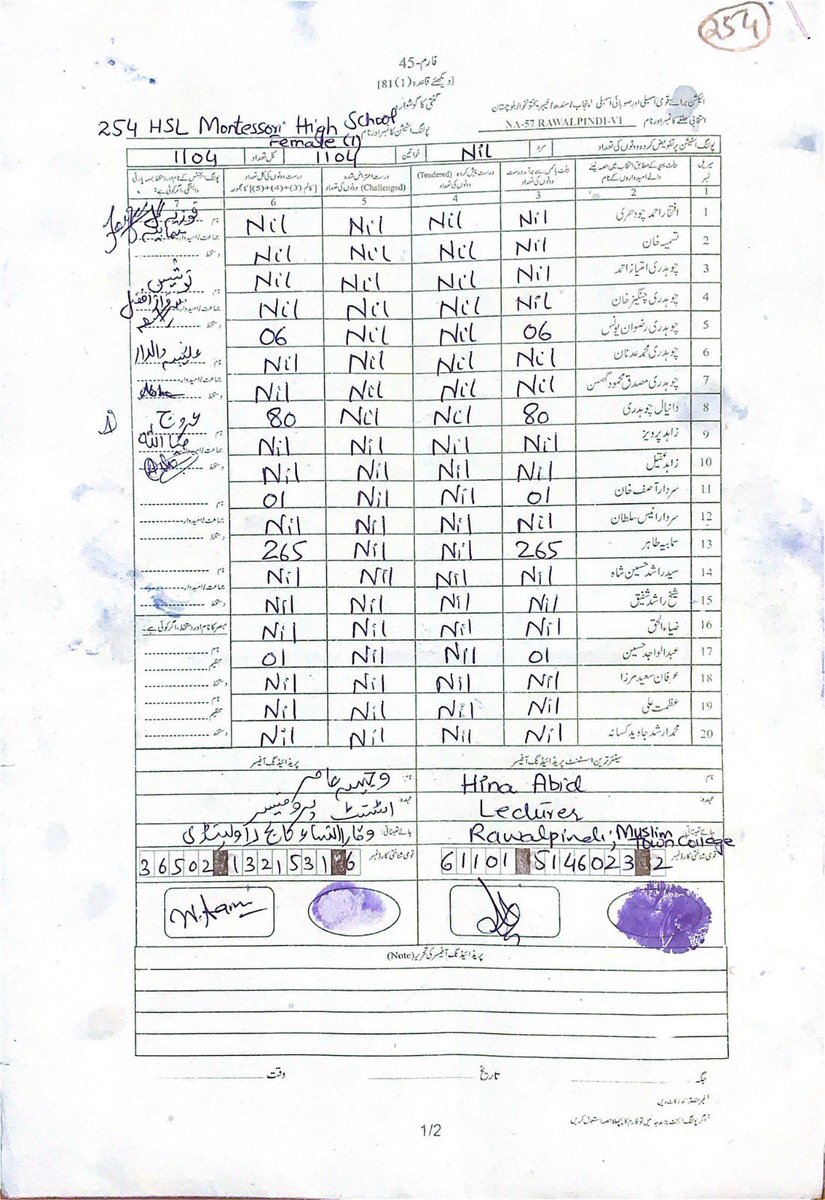 254
فارم-45
[دیکھئے قاعدہ (1)81]
گنتی کا گوشوارہ
الیکشن برائے قومی اسمبلی اور صوبائی اسمبلی پنجاب/سندھ/خیبر پختونخوا/بلوچستان
254 HSL Montessori High School Female (1)
پولنگ اسٹیشن کا نمبر اور نام
انتخابی حلقے کا نمبر اور نام NA-57 RAWALPINDI-VI
پولنگ اسٹیشن پر تفویض کردہ ووٹوں کی تعداد مرد Nil خواتین 1104 کل تعداد 1104
سیریل نمبر
بیلٹ پیپر کے مطابق انتخاب میں حصہ لینے والے امیدواروں کے نام
درست پیش کردہ (Tendered) ووٹوں کی تعداد
درست اعتراض شدہ (Challenged) ووٹوں کی تعداد
درست ووٹوں کی کل تعداد [کالم (3)+(4)+(5) کا مجموعہ]
1 2 3 4 5 6 7
1 افتخار احمد چودھری Nil Nil Nil Nil
2 تسمیہ خان Nil Nil Nil Nil
3 چوہدری امتیاز احمد Nil Nil Nil Nil
4 چوہدری چنگیز خان Nil Nil Nil Nil
5 چوہدری رضوان یونس 06 Nil Nil 06
6 چوہدری محمد عدنان Nil Nil Nil Nil
7 چوہدری مصدق محمود گھمن Nil Nil Nil Nil
8 دانیال چوہدری 80 Nil Nil 80
9 زاہد پرویز Nil Nil Nil Nil
10 زاہد عقیل Nil Nil Nil Nil
11 سردار آصف خان 01 Nil Nil 01
12 سردار انیس سلطان Nil Nil Nil Nil
13 سمابیہ طاہر 265 Nil Nil 265
14 سید راشد حسین شاہ Nil Nil Nil Nil
15 شیخ راشد شفیق Nil Nil Nil Nil
16 ضیاء الحق Nil Nil Nil Nil
17 عبدالواجد حسین 01 Nil Nil 01
18 عرفان سعید مرزا Nil Nil Nil Nil
19 عظمت علی Nil Nil Nil Nil
20 محمد ارشد جاوید کسانہ Nil Nil Nil Nil
نام
جماعت/امیدوار
دستخط
مبصر کا نام اور دستخط، اگر کوئی ہے۔
نام
تنظیم
دستخط
سینئر ترین اسسٹنٹ پریذائیڈنگ آفیسر
پریذائیڈنگ آفیسر
نام Hina Abid
نام
عہدہ Lecturer
عہدہ اسسٹنٹ پروفیسر
جائے تعیناتی Rawalpindi, Muslim Town College
جائے تعیناتی وقار النساء کالج راولپنڈی
قومی شناختی کارڈ نمبر 61101 5146023 2
قومی شناختی کارڈ نمبر 36502 1321531 6
W.Aamir
پریذائیڈنگ آفیسر کی تحریر (Note)
جگہ تاریخ وقت
1/2